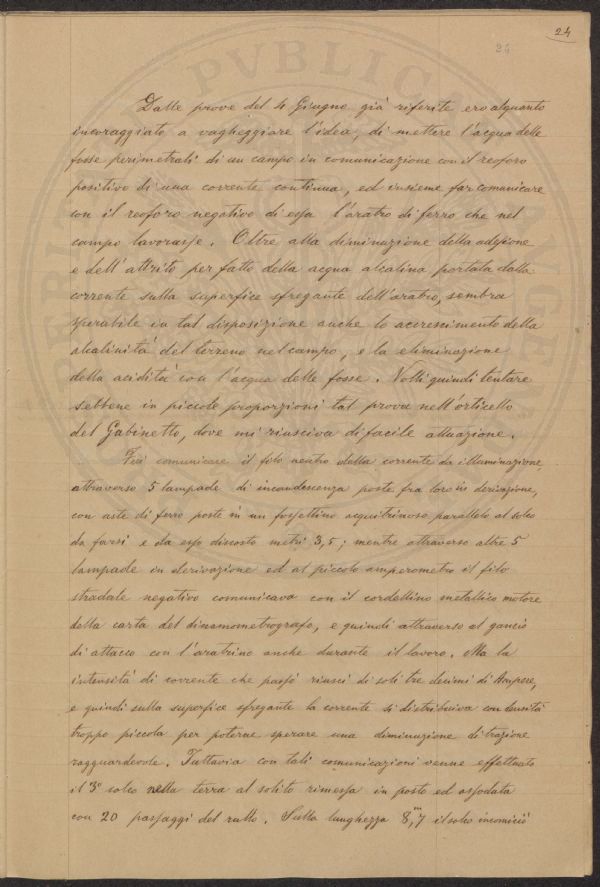 24
24
Dalle prove del 4 Giugno già riferite ero alquanto
incoraggiato a vagheggiare l'idea, di mettere l'acqua delle
fosse perimetrali di un campo in comunicazione con il reoforo
positivo di una corrente continua, ed insieme far comunicare
con il reoforo negativo di essa l'aratro di ferro che nel
campo lavorasse. Oltre alla diminuzione della adesione
e dell'attrito per fatto della acqua alcalina portata dalla
corrente sulla superfice sfregante dell'aratro, sembra
sperabile in tal disposizione anche lo accrescimento della
alcalinità del terreno nel campo, e la eliminazione
della acidità con l'acqua delle fosse. Volli quindi tentare
sebbene in piccole proporzioni tal prova nell'orticello
del Gabinetto, dove mi riusciva di facile attuazione.
Feci comunicare il filo neutro della corrente da illuminazione,
attraverso 5 lampade di incandescenza poste fra loro in derivazione,
con aste di ferro poste in un fossettino acquitrinoso parallelo al solco
da farsi e da esso discosto metri 3,5; mentre attraverso altre 5
lampade in derivazione ed al piccolo amperometro il filo
stradale negativo comunicava con il cordellino metallico motore
della carta del dinamometrografo, e quindi attraverso al gancio
di attacco con l'aratrino anche durante il lavoro. Ma la
intensità di corrente che passò riuscì di soli tre decimi di Ampere,
e quindi sulla superfice sfregante la corrente si distribuiva con densità
troppo piccola per poterne sperare una diminuzione di trazione
ragguardevole. Tuttavia con tali comunicazioni venne effettuato
il 3° solco nella terra al solito rimessa in posto ed assodata
con 20 passaggi del rullo. Sulla lunghezza 8,<sup>m</sup>7 il solco incominciò